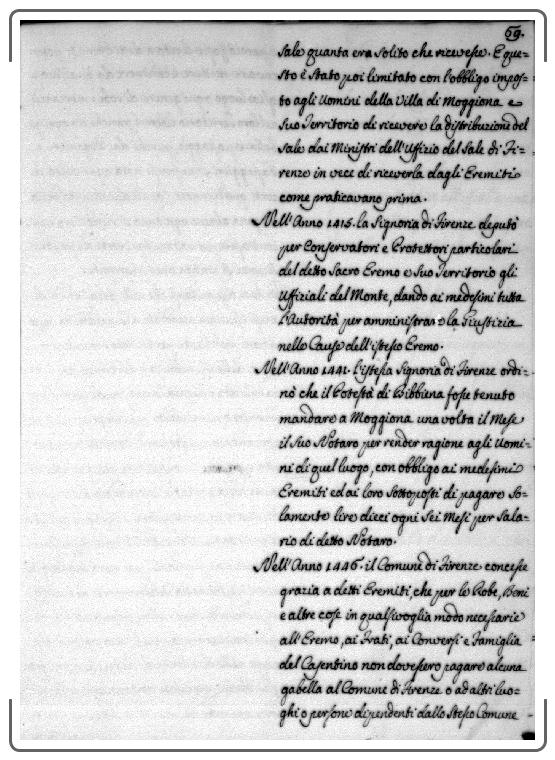 69.
Sale quanta era solito che ricevesse. E que=
sto è stato poi limitato con l'obbligo impos=
to agli Uomini della Villa di Moggiona e
Suo Territorio di ricevere la distribuzione del
Sale dai Ministri dell'Uffizio del Sale di Fi=
renze in vece di riceverla dagli Eremiti
come praticavano prima.
Nell'Anno 1415. la Signoria di Firenze deputò
per Conservatori e Protettori particolari
del detto Sacro Eremo e Suo Territorio gli
Uffiziali del Monte, dando ai medesimi tutta
l'Autorità per amministrare la Giustizia
nelle Cause dell'istesso Eremo.
Nell'Anno 1441. l'istessa Signoria di Firenze ordi=
nò che il Potestà di Bibbiena fosse tenuto
mandare a Moggiona una volta il Mese
il Suo Notaro per render ragione agli Uomi=
ni di quel luogo, con obbligo ai medesimi
Eremiti ed ai loro Sottoposti di pagare So=
lamente lire dieci ogni Sei Mesi per Sala=
rio di detto Notaro.
Nell'Anno 1446. il Comune di Firenze concesse
grazia a detti Eremiti, che per le Robe, Beni
e altre cose in qualsivoglia modo necessarie
all'Eremo, ai Frati, ai Conversi e Famiglia
del Casentino non dovessero pagare alcuna
gabella al Comune di Firenze o ad altri luo=
ghi o persone dipendenti dallo Stesso Comune